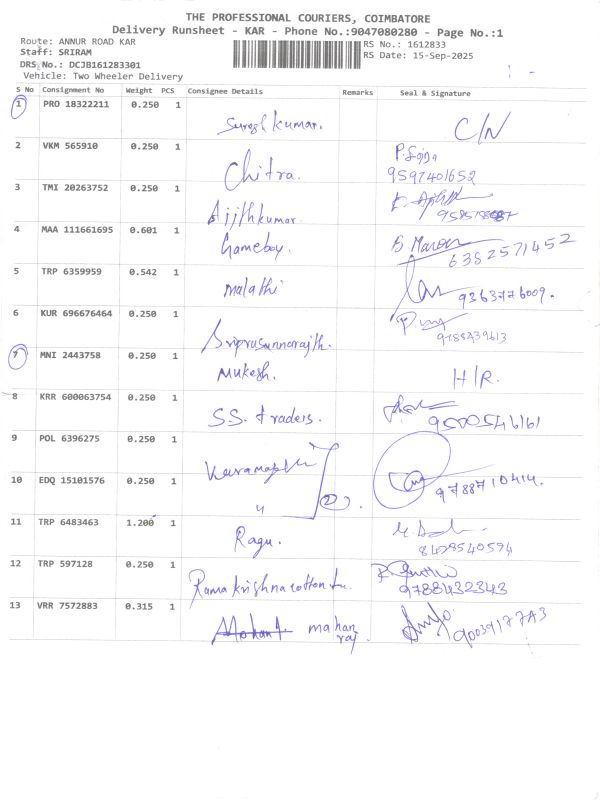 THE PROFESSIONAL COURIERS, COIMBATORE
Delivery Runsheet - KAR - Phone No.:9047080280 - Page No.:1
Route: ANNUR ROAD KAR
RS No.: 1612833
Staff: SRIRAM
RS Date: 15-Sep-2025
DRS No.: DCJB161283301
Vehicle: Two Wheeler Delivery
S No Consignment No Weight PCS Consignee Details Remarks Seal & Signature
1 PRO 18322211 0.250 1 Suresh kumar. C/N
2 VKM 565910 0.250 1 Chitra. 9597401652
3 TMI 20263752 0.250 1 Ajithkumar
4 MAA 111661695 0.601 1 Gameboy. 6382571452
5 TRP 6359959 0.542 1 Malathi 9363776009.
6 KUR 696676464 0.250 1 9788439613
7 MNI 2443758 0.250 1 Mukesh. H/R.
8 KRR 600063754 0.250 1 SS. traders. 9500546161
9 POL 6396275 0.250 1
10 EDQ 15101576 0.250 1 " 2 9788710414.
11 TRP 6483463 1.200 1 Ragu. 8428540594
12 TRP 597128 0.250 1 Ramakrishna cotton 9788432343
13 VRR 7572883 0.315 1 mahan raj